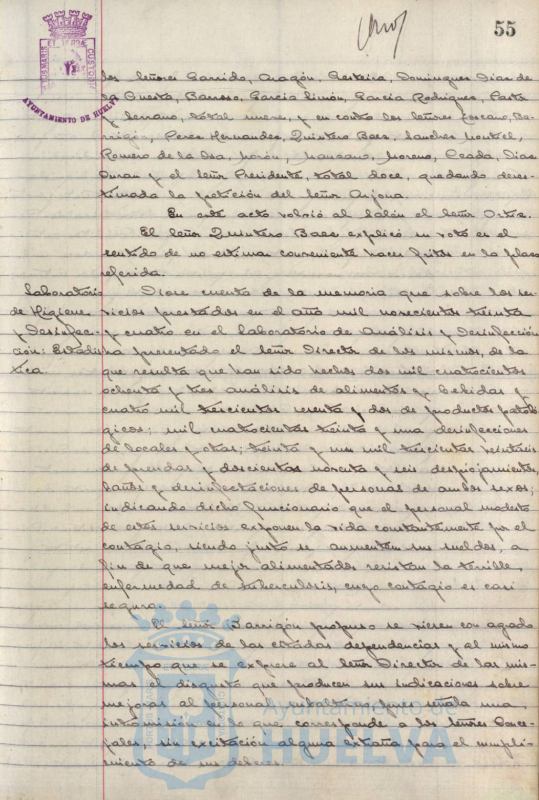 55
AYUNTAMIENTO DE HUELVA
los Señores Garrido, Aragón, Texteira, Dominguez Diaz de
la Cuesta, Barroso, García Limón, García Rodriguez,
y Serrano, total nueve, y en contra los señores Toscano, Ba-
rrigón, Perez Hernandez, Quintero Baez, Sanchez Montiel,
Romero de la Osa, Morón, Manzano, Moreno, Ceada, Diaz
Duran y el Señor Presidente, total doce, quedando deses-
timada la petición del Señor Arjona.
En este acto volvió al salón el Señor Ortiz.
El Señor Quintero Baez explicó su voto en el
sentido de no estimar conveniente hacer fritos en la plaza
referida.
Laboratorio
de Higiene
y Desinfec-
ción: Estadis-
tica.
Diose cuenta de la memoria que sobre los ser-
vicios prestados en el año mil novecientos treinta
y cuatro en el Laboratorio de Análisis y Desinfección
ha presentado el Señor Director de los mismos, de la
que resulta que han sido hechos dos mil cuatrocientos
ochenta y tres análisis de alimentos y bebidas y
cuatro mil trescientos sesenta y dos de productos patoló-
gicos; mil cuatrocientos treinta y una desinfecciones
de locales y otras; treinta y un mil trescientas veintiseis
de prendas y doscientos noventa y seis despiojamientos,
baños y desinfectaciones de personas de ambos sexos;
indicando dicho funcionario que el personal modesto
de estos servicios exponen la vida constantemente por el
contagio, siendo justo se aumenten sus sueldos, a
fin de que mejor alimentados resistan la terrible
enfermedad de tuberculosis, cuyo contagio es casi
seguro.
El Señor Barrigón propuso se viesen con agrado
los servicios de las citadas dependencias y al mismo
tiempo que se exprese al Señor Director de las mis-
mas el disgusto que producen sus indicaciones sobre
mejoras al personal subalterno, pues señala una
intromisión en lo que corresponde a los Señores Conce-
jales, sin excitación alguna extraña para el cumpli-
miento de sus deberes.
Ayuntamiento de
HUELVA